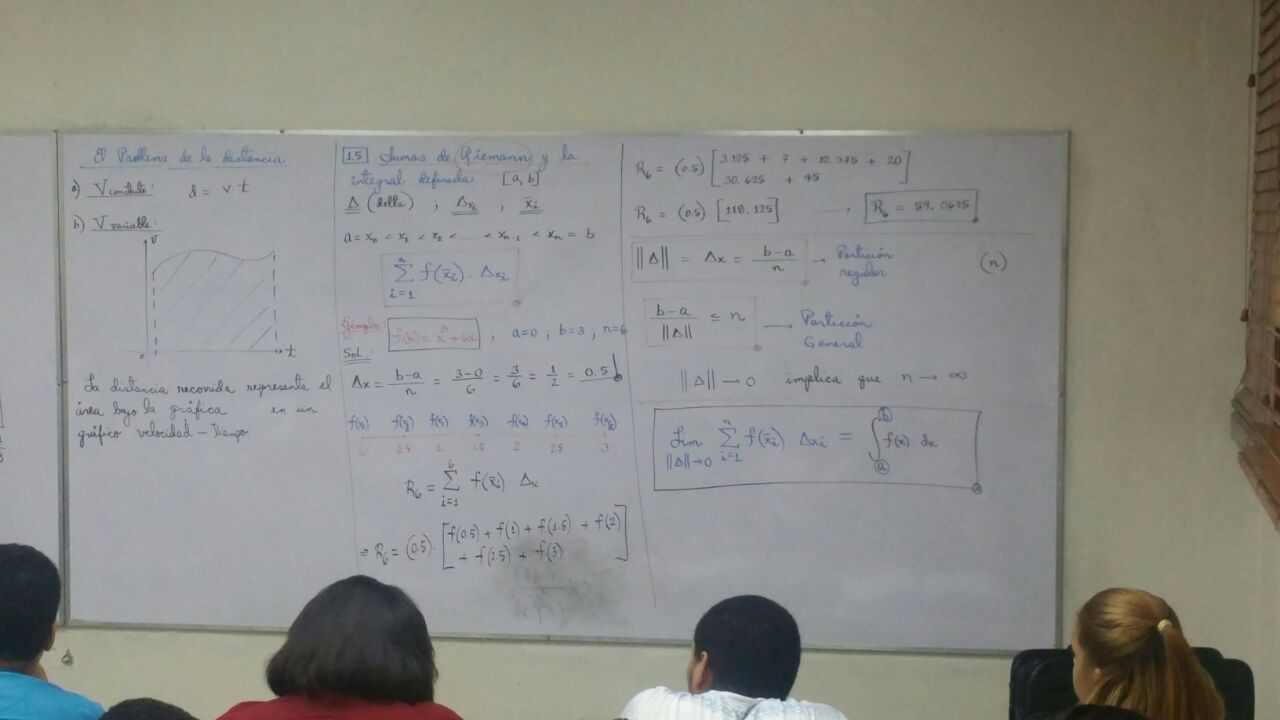 El Problema de la distancia
a) V constante: d = v · t
b) V variable:
v
o
t
La distancia recorrida representa el
área bajo la gráfica en un
gráfico velocidad - tiempo
1.5 Sumas de Riemann y la
integral definida [a, b]
Δ (delta) , Δxᵢ , x̄ᵢ
a = x₀ < x₁ < x₂ < ...... < xₙ₋₁ < xₙ = b
∑ᵢ₌₁ⁿ f(x̄ᵢ) · Δxᵢ
Ejemplo: f(x) = x³ + 6x , a=0 , b=3 , n=6
Sol:
Δx = (b-a)/n = (3-0)/6 = 3/6 = 1/2 = 0.5
0 0.5 1 1.5 2 2.5 3
R₆ = ∑ᵢ₌₁⁶ f(x̄ᵢ) Δx
⇒ R₆ = (0.5) · [f(0.5) + f(1) + f(1.5) + f(2)
+ f(2.5) + f(3)]
R₆ = (0.5) [3.125 + 7 + 12.375 + 20
30.625 + 45]
R₆ = (0.5) [118.125] → R₆ = 59.0625
||Δ|| = Δx = (b-a)/n → Partición
regular
(n)
(b-a)/||Δ|| ≤ n → Partición
General
||Δ|| → 0 implica que n → ∞
Lim ||Δ||→0 ∑ᵢ₌₁ⁿ f(x̄ᵢ) Δxᵢ = ∫ₐᵇ f(x) dx